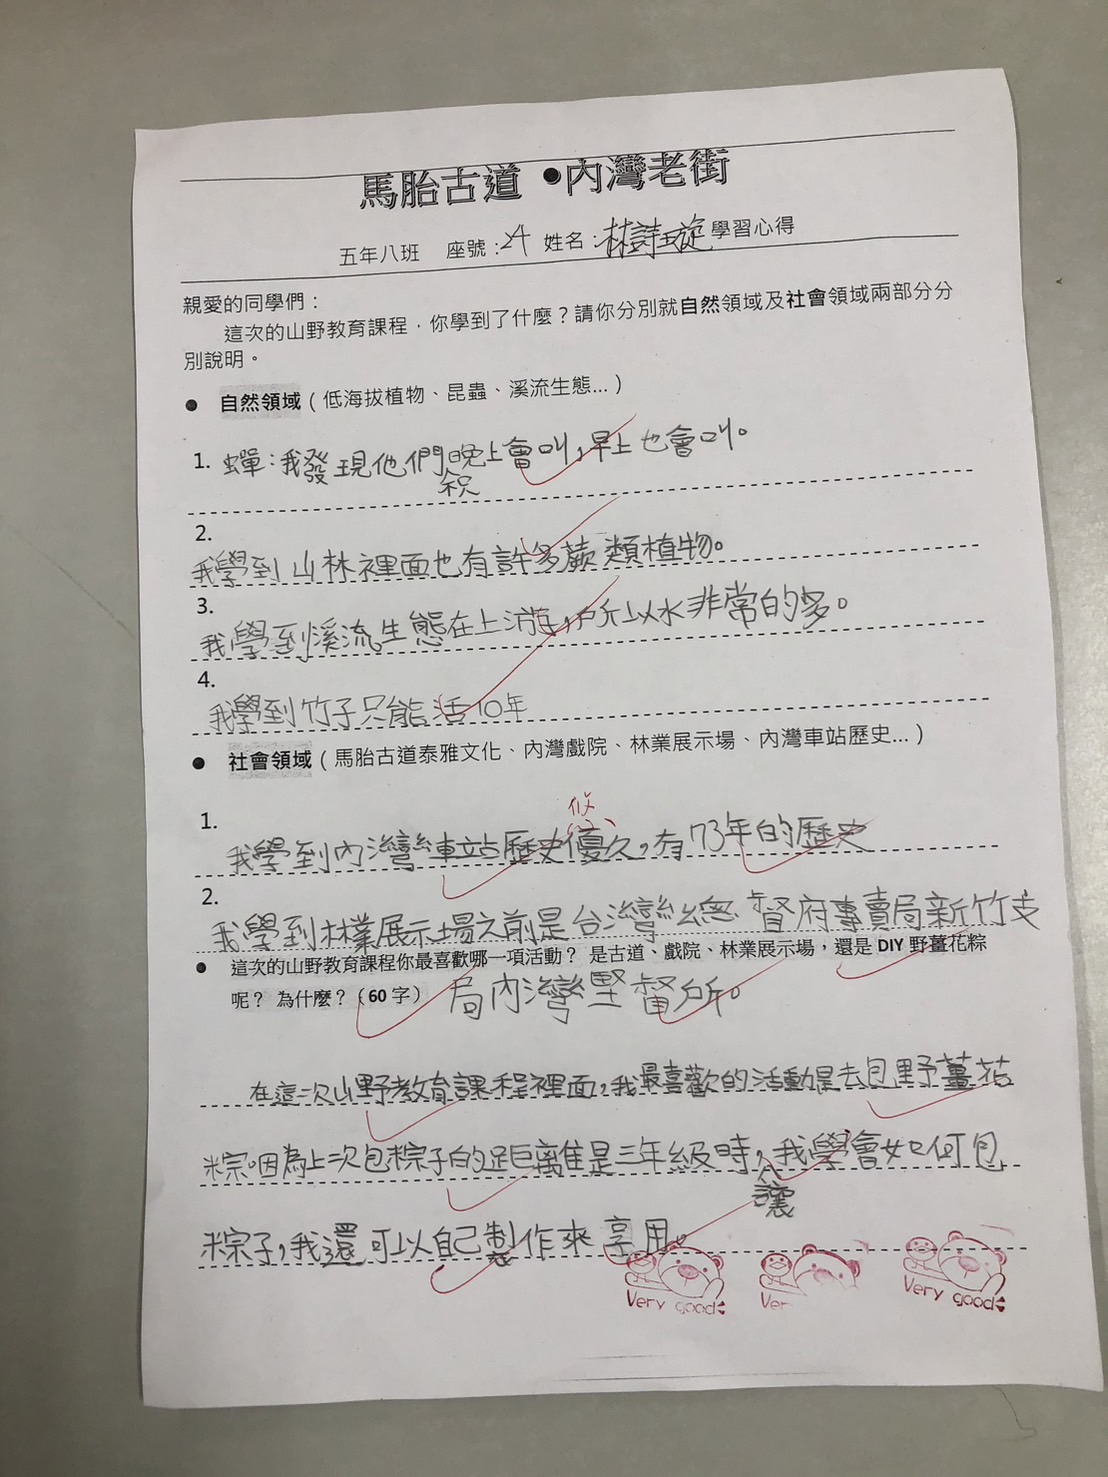 馬胎古道 •內灣老街
五年八班 座號：24 姓名：林詩璇 學習心得
親愛的同學們：
這次的山野教育課程，你學到了什麼？請你分別就自然領域及社會領域兩部分分
別說明。
● 自然領域（低海拔植物、昆蟲、溪流生態...）
1. 蟬：我發現他們晚上會叫，早上也會叫。
2.
我學到山林裡面也有許多蕨類植物。
3.
我學到溪流生態在上游，所以水非常的多。
4.
我學到竹子只能活10年
● 社會領域（馬胎古道泰雅文化、內灣戲院、林業展示場、內灣車站歷史...）
悠
1.
我學到內灣車站歷史優久，有73年的歷史
2.
我學到林業展示場之前是台灣總督府專賣局新竹支
● 這次的山野教育課程你最喜歡哪一項活動？ 是古道、戲院、林業展示場，還是 DIY 野薑花粽
呢？ 為什麼？（60 字） 局內灣堅督所。
在這次山野教育課程裡面，我最喜歡的活動是去包野薑花
粽因為上次包粽子的距離是三年級時，我學會如何包
讓
粽子，我還可以自己製作來享用。
Very good
Ver
Very good